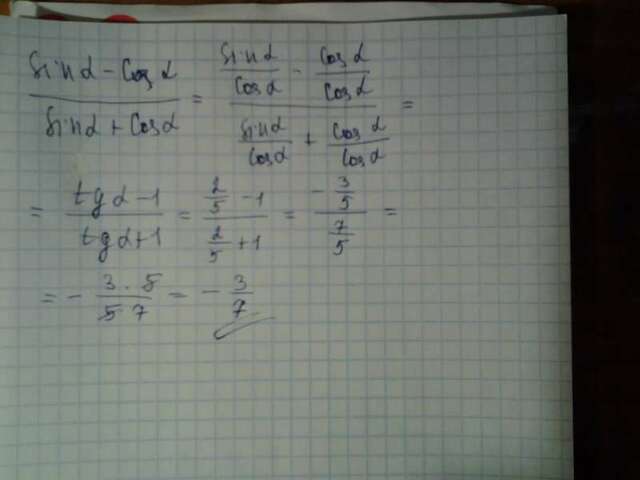 (sin α - cos α)/(sin α + cos α) = (sin α/cos α - cos α/cos α)/(sin α/cos α + cos α/cos α) =
= (tg α - 1)/(tg α + 1) = (2/5 - 1)/(2/5 + 1) = (- 3/5)/(7/5) =
= - (3 · 5)/(5 7) = - 3/7